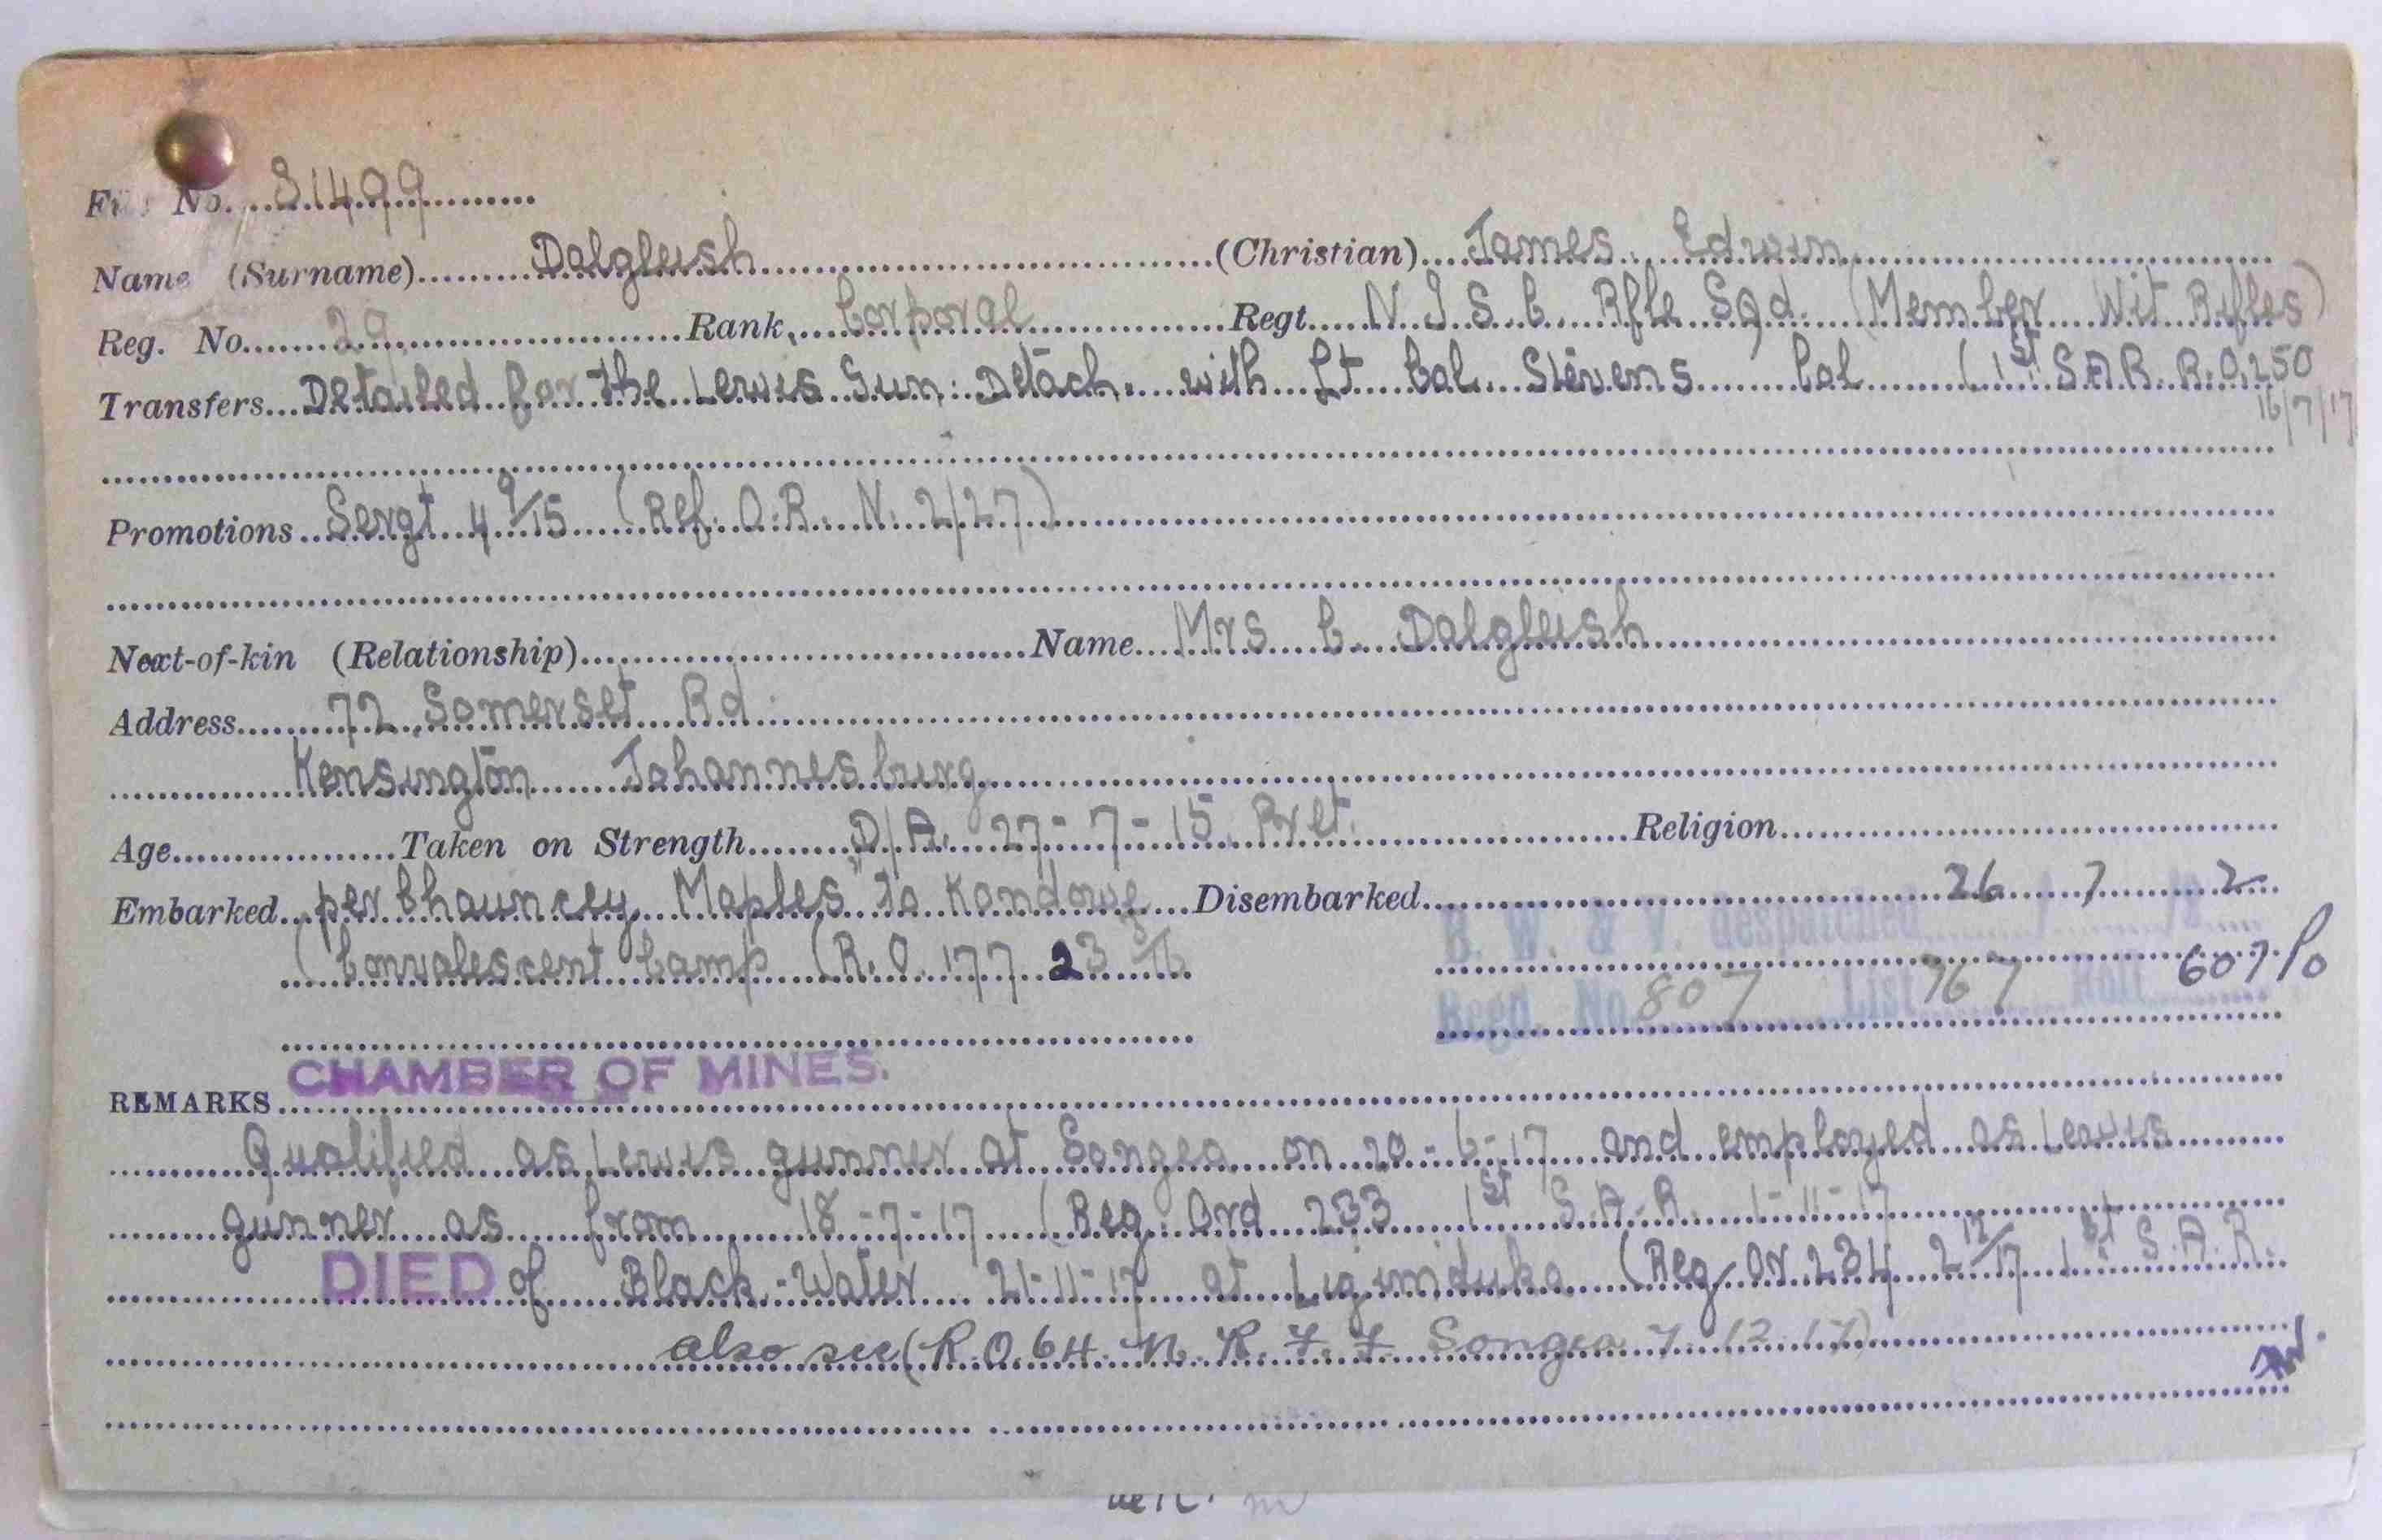 File No. 31499
Name (Surname) Dalgleish (Christian) James Edwin
Reg. No. 29 Rank Corporal Regt. N I S C Rfle Sqd. (Member Wit Rifles)
Transfers Detailed for the Lewis Gun: Detach. with Lt Col. Stevens Col (1st S.A.R. R.O. 250
16/7/17
Promotions Sergt 4 9/15 (Ref. O.R. N. 2/27)
Next-of-kin (Relationship) Name Mrs C. Dalgleish
Address 72 Somerset Rd.
Kensington Johannesburg
Age Taken on Strength D/A. 27-7-15 Pvet. Religion
Embarked per "Chauncey Maples" to Kondowe Disembarked 26 7 2
B. W. & V. despatched
(Convalescent Camp (R.O. 177 23 /16
Regd. No. 807 List 767 Roll 607 Po
CHAMBER OF MINES.
REMARKS
Qualified as Lewis gunner at Songea on 20-6-17 and employed as Lewis
gunner as from 18-7-17 (Reg. Ord 233 1st S.A.R. 1-11-17
DIED of Black-Water 21-11-17 at Ligimduka (Reg. Or 234 2 12/17 1st S.A.R.
also see (R.O. 64. N. R. F. F. Songea 7.12.17)